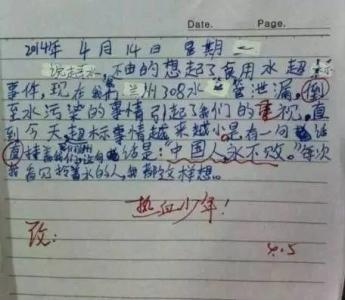 Date. Page.
2014年 4月14日 星期一
说起水,不由的想起了食用水超
事件,现在 兰州308水 管泄漏,倒
至水污染的事情引起了我们的重视,直
到今天,超标事情越来越小是有一句话
直 话是:“中国人永不败。”每次
我看见 水的人,我都这样想。
热血少年!
改: 4.5